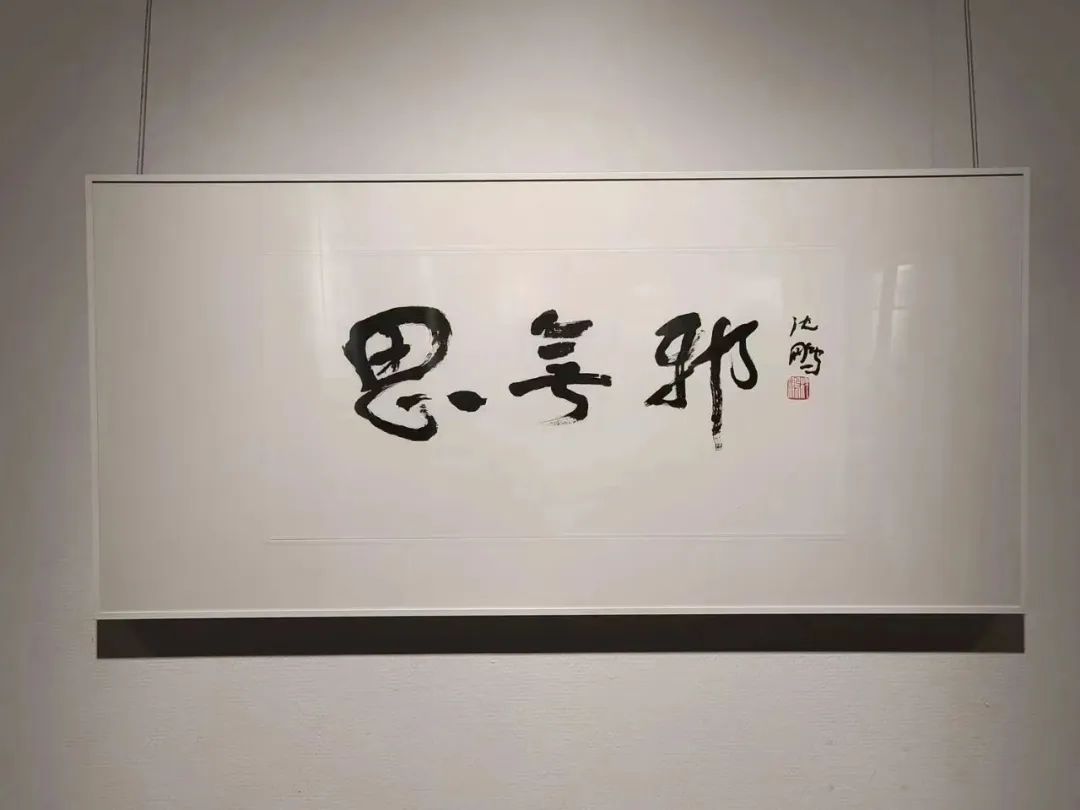 思無邪
沈鹏